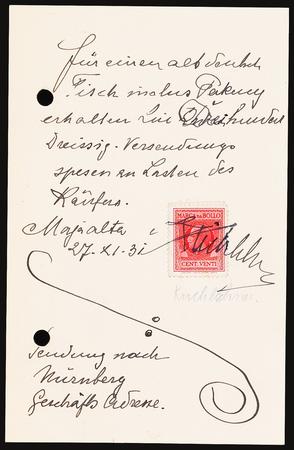 für einen altdeutsch
Tisch inclus Pakung
erhalten Lire Dreihundert
Dreissig. Versendungs
spesen an Lasten des
Käufers.
Maja alta
27. XI. 31
MARCA DA BOLLO
CENT. VENTI
Sendung nach
Nürnberg
Geschäfts Adresse.